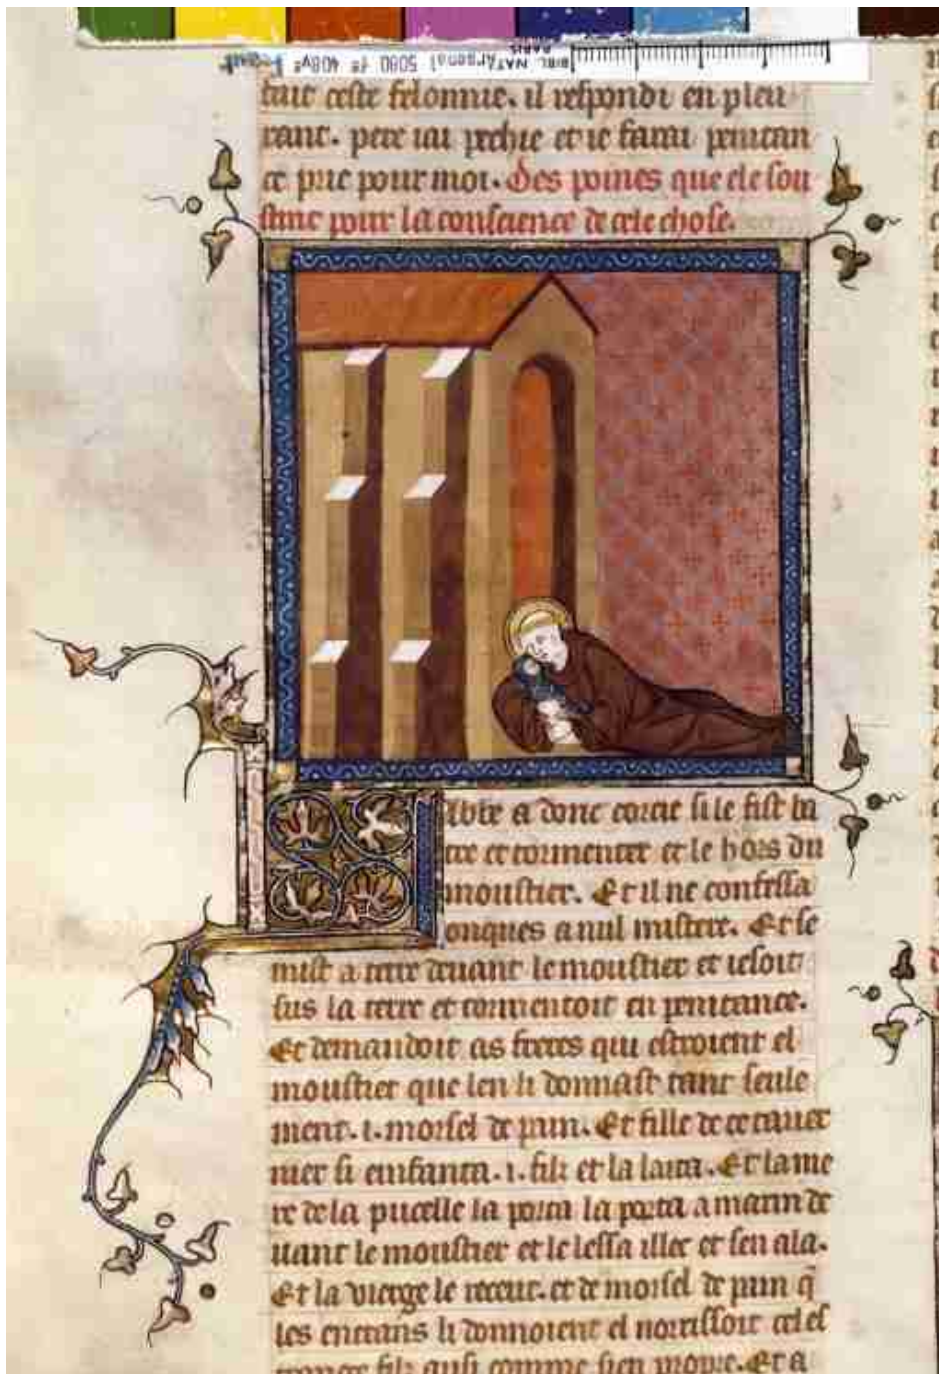 BIBL. NAT. Arsenal 5080 fº 408vº
PARIS
tute ceste felonnie. il respondi en pleu
rant. pere iai pechie et ie farai penitan
ce prie pour moi. Des poines que ele sou
stint pour la conscience de cele chose.
Abbe a donc corcie si le fist ba
tre et tormenter et le hors du
moustier. Et il ne confessa
onques a nul mistere. Et se
mist a terre deuant le moustier et iesoit
sus la terre et tormentoit en penitance.
Et demandoit as freres qui estroient el
moustier que len li donnast tant seule
ment .i. morsel de pain. Et fille de ce tauer
nier si enfanta .i. filz et la laita. Et la me
re de la pucelle la porta la porta a martin de
uant le moustier et le lessa illec et sen ala.
Et la vierge le receut. et de morsel de pain q̄
les entrans li donnoient el norrissoit cel es
filz ausi comme sien propre. Et a